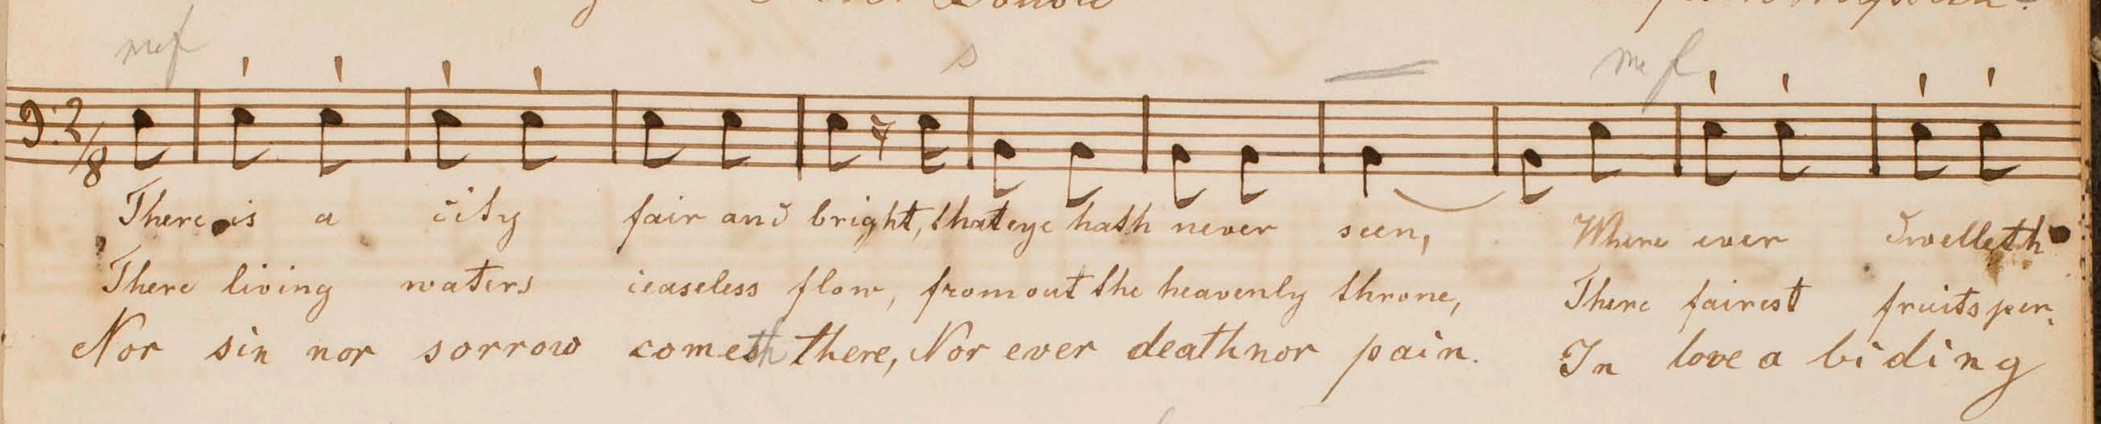 mf s mf
2/8
There is a city fair and bright, that eye hath never seen, Where ever dwelleth
There living waters ceaseless flow, from out the heavenly throne, There fairest fruits per-
Nor sin nor sorrow cometh there, Nor ever death nor pain. In love a biding